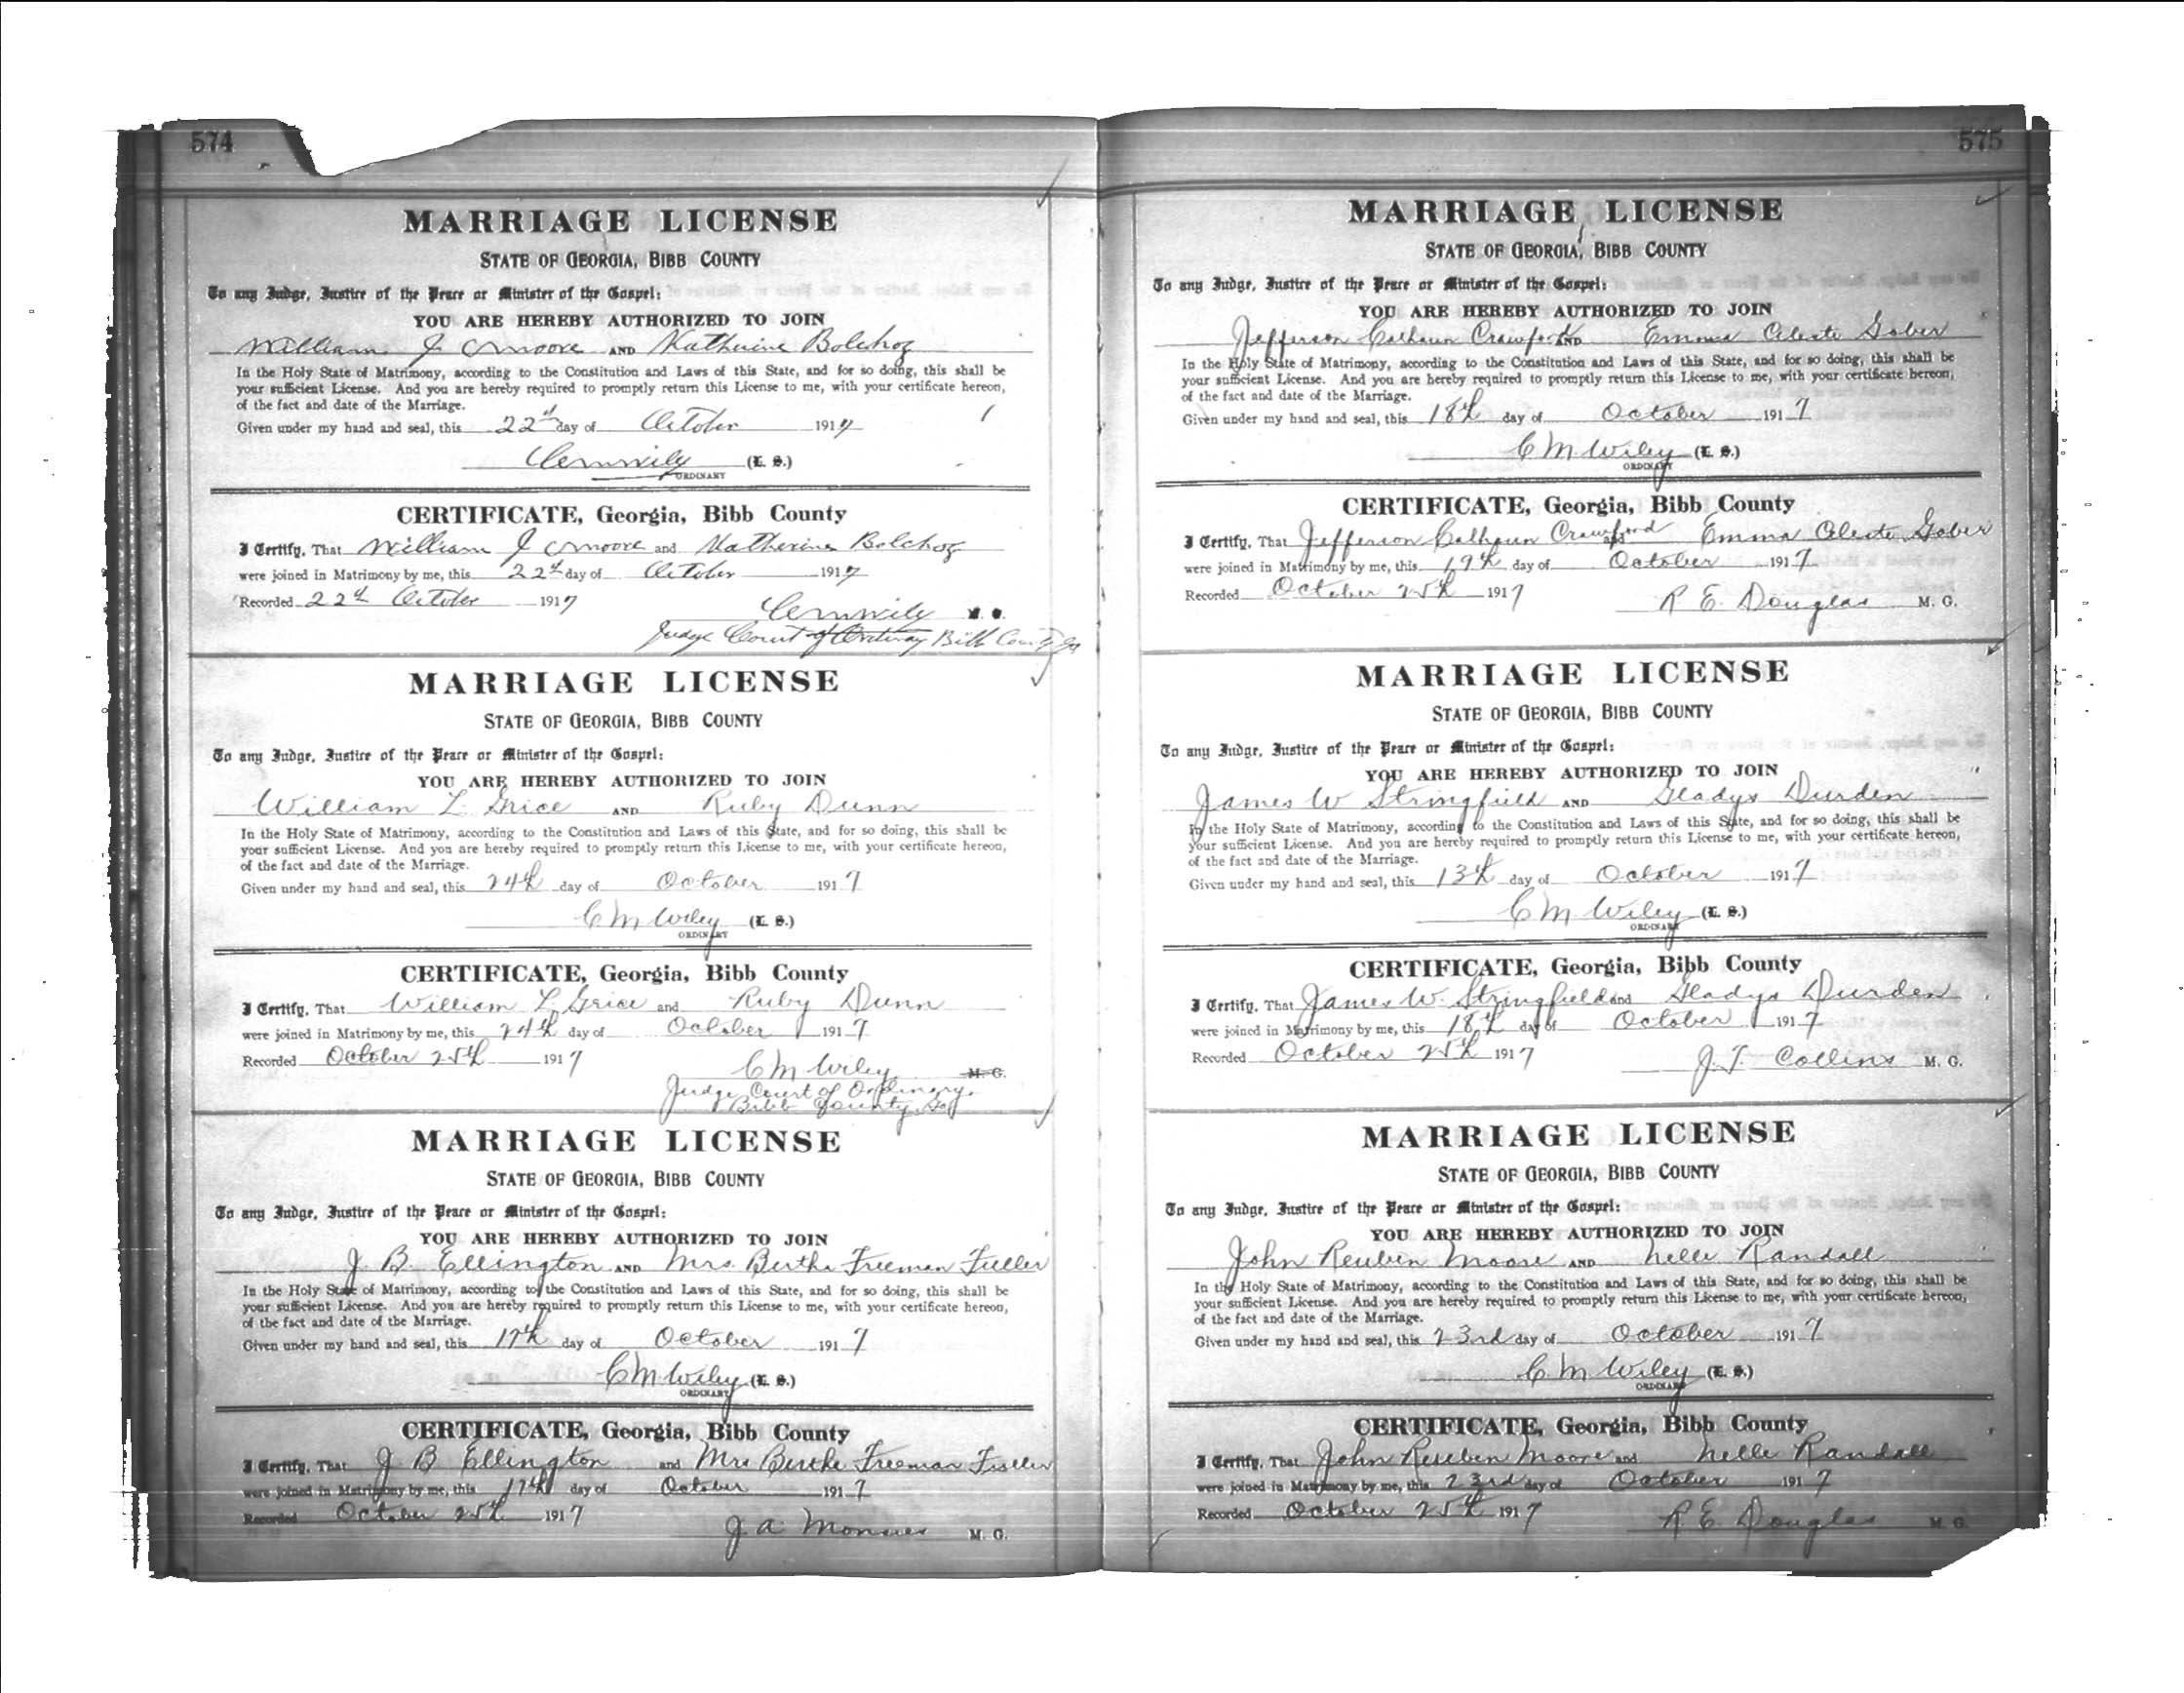 574
MARRIAGE LICENSE
STATE OF GEORGIA, BIBB COUNTY
To any Judge, Justice of the Peace or Minister of the Gospel:
YOU ARE HEREBY AUTHORIZED TO JOIN
William J Moore AND Katherine Bolchoz
In the Holy State of Matrimony, according to the Constitution and Laws of this State, and for so doing, this shall be
your sufficient License. And you are hereby required to promptly return this License to me, with your certificate hereon,
of the fact and date of the Marriage.
Given under my hand and seal, this 22d day of October 1917
CM Wiley (L. S.)
ORDINARY
CERTIFICATE, Georgia, Bibb County
I Certify, That William J Moore and Katherine Bolchoz
were joined in Matrimony by me, this 22d day of October 1917
Recorded 22d October 1917
CM Wiley
Judge Court of Ordinary Bibb County Ga
MARRIAGE LICENSE
STATE OF GEORGIA, BIBB COUNTY
To any Judge, Justice of the Peace or Minister of the Gospel:
YOU ARE HEREBY AUTHORIZED TO JOIN
William L. Grice AND Ruby Dunn
In the Holy State of Matrimony, according to the Constitution and Laws of this State, and for so doing, this shall be
your sufficient License. And you are hereby required to promptly return this License to me, with your certificate hereon,
of the fact and date of the Marriage.
Given under my hand and seal, this 24th day of October 1917
C M Wiley (L. S.)
ORDINARY
CERTIFICATE, Georgia, Bibb County
I Certify, That William L. Grice and Ruby Dunn
were joined in Matrimony by me, this 24th day of October 1917
Recorded October 25th 1917
C M Wiley M. G.
Judge Court of Ordinary.
Bibb County, Ga
MARRIAGE LICENSE
STATE OF GEORGIA, BIBB COUNTY
To any Judge, Justice of the Peace or Minister of the Gospel:
YOU ARE HEREBY AUTHORIZED TO JOIN
J. B. Ellington AND Mrs. Berthe Freeman Fuller
In the Holy State of Matrimony, according to the Constitution and Laws of this State, and for so doing, this shall be
your sufficient License. And you are hereby required to promptly return this License to me, with your certificate hereon,
of the fact and date of the Marriage.
Given under my hand and seal, this 17th day of October 1917
C M Wiley (L. S.)
ORDINARY
CERTIFICATE, Georgia, Bibb County
I Certify, That J B Ellington and Mrs Berthe Freeman Fuller
were joined in Matrimony by me, this 17th day of October 1917
Recorded October 25th 1917
J. A. M. G.
575
MARRIAGE LICENSE
STATE OF GEORGIA, BIBB COUNTY
To any Judge, Justice of the Peace or Minister of the Gospel:
YOU ARE HEREBY AUTHORIZED TO JOIN
Jefferson Calhoun Crawford AND Emma Celeste Gober
In the Holy State of Matrimony, according to the Constitution and Laws of this State, and for so doing, this shall be
your sufficient License. And you are hereby required to promptly return this License to me, with your certificate hereon,
of the fact and date of the Marriage.
Given under my hand and seal, this 18th day of October 1917
C M Wiley (L. S.)
ORDINARY
CERTIFICATE, Georgia, Bibb County
I Certify, That Jefferson Calhoun Crawford and Emma Celeste Gober
were joined in Matrimony by me, this 19th day of October 1917
Recorded October 25th 1917
R E. Douglas M. G.
MARRIAGE LICENSE
STATE OF GEORGIA, BIBB COUNTY
To any Judge, Justice of the Peace or Minister of the Gospel:
YOU ARE HEREBY AUTHORIZED TO JOIN
James W Stringfield AND Gladys Durden
In the Holy State of Matrimony, according to the Constitution and Laws of this State, and for so doing, this shall be
your sufficient License. And you are hereby required to promptly return this License to me, with your certificate hereon,
of the fact and date of the Marriage.
Given under my hand and seal, this 13th day of October 1917
C M Wiley (L. S.)
ORDINARY
CERTIFICATE, Georgia, Bibb County
I Certify, That James W. Stringfield and Gladys Durden
were joined in Matrimony by me, this 18th day of October 1917
Recorded October 25th 1917
J. T. Collins M. G.
MARRIAGE LICENSE
STATE OF GEORGIA, BIBB COUNTY
To any Judge, Justice of the Peace or Minister of the Gospel:
YOU ARE HEREBY AUTHORIZED TO JOIN
John Reuben Moore AND Nelle Randall
In the Holy State of Matrimony, according to the Constitution and Laws of this State, and for so doing, this shall be
your sufficient License. And you are hereby required to promptly return this License to me, with your certificate hereon,
of the fact and date of the Marriage.
Given under my hand and seal, this 23rd day of October 1917
C. M Wiley (L. S.)
ORDINARY
CERTIFICATE, Georgia, Bibb County
I Certify, That John Reuben Moore and Nelle Randall
were joined in Matrimony by me, this 23rd day of October 1917
Recorded October 25th 1917
R E. Douglas M. G.